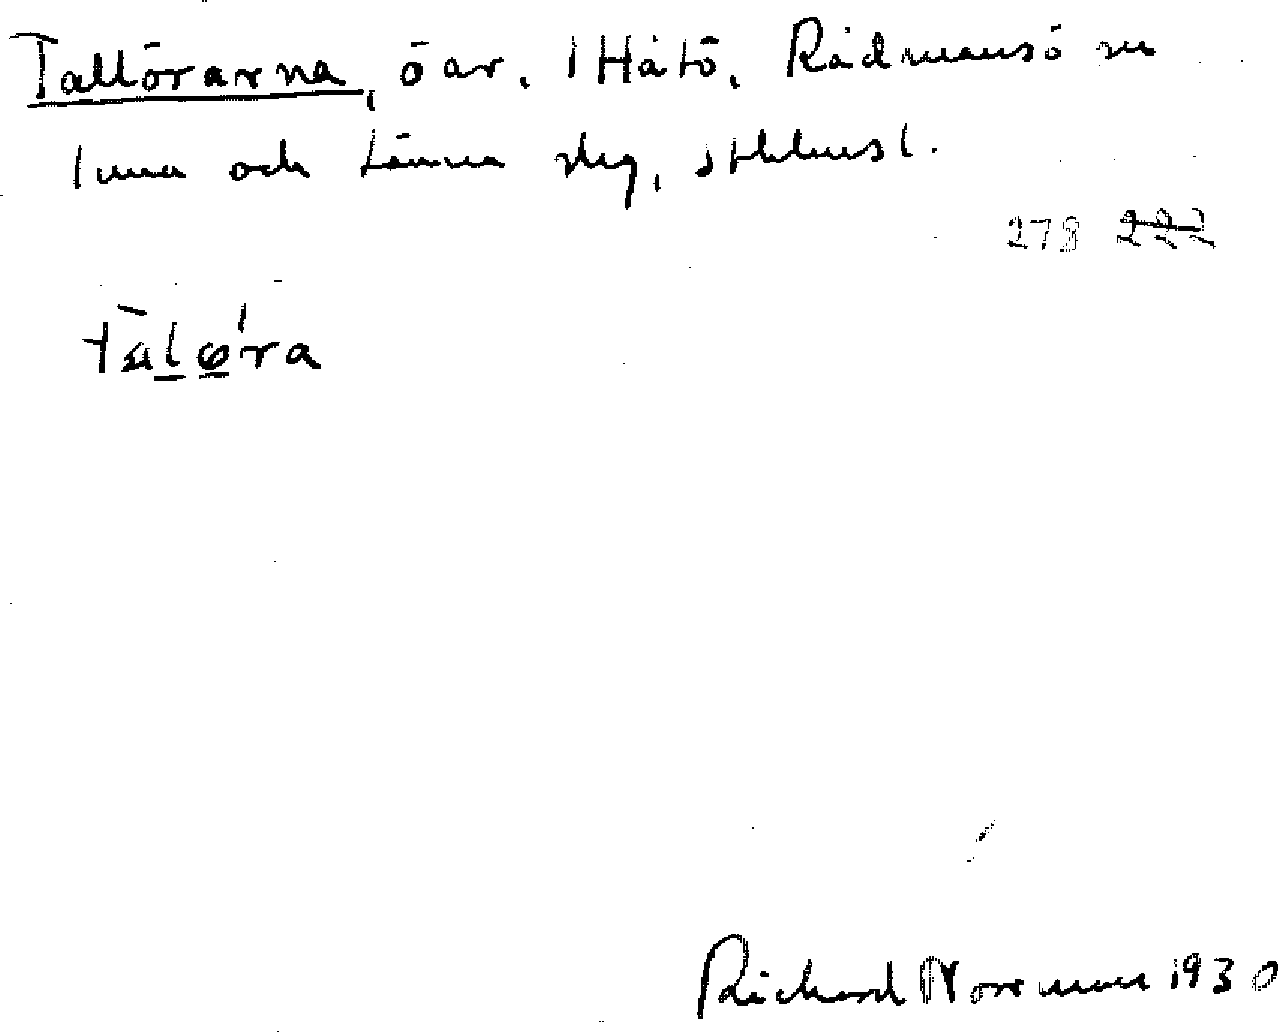 Tallörarna, öar. i Håtö, Rådmansö sn
Tuna och Länna slg, Sthlms l.
278 222
tālǿra
Richard Norrman 1930